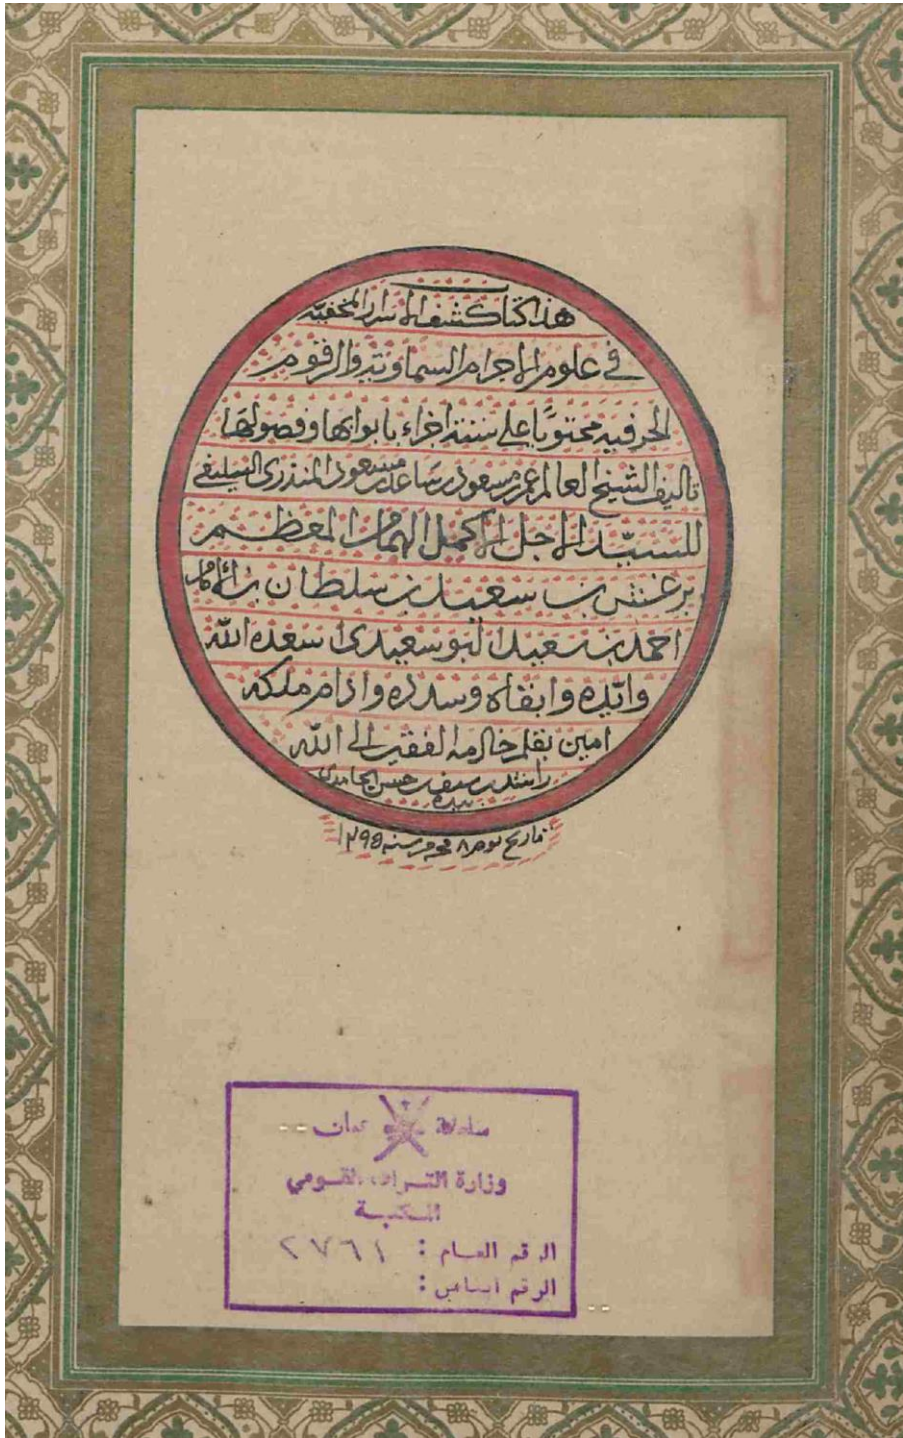 هذا كتاب كشف الاسرار المخفيه
في علوم الاجرام السماوية والرقوم
الحرفيه محتويا على ستة اجزاء بابوابها وفصولها
تاليف الشيخ العالم عمر بن مسعود بن ساعد المنذري السليفي
للسيد الاجل الاكمل الهمام المعظم
برغش بن سعيد بن سلطان بن الامام
احمد بن سعيد البوسعيدي اسعده الله
وايده وابقاه وسدده وادام ملكه
امين بقلم خادمه الفقير الى الله
راشد بن سيف
بيده
تاريخ يوم ٨ محرم سنه ١٢٩٥
سلطنة عمان
وزارة التراث القومي
المكتبة
الرقم العام : ٢٧٦١
الرقم الخاص :